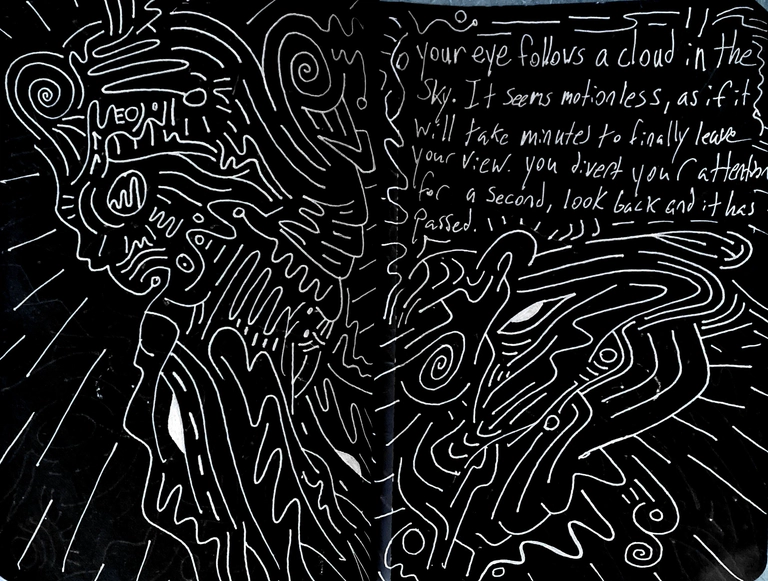 your eye follows a cloud in the
sky. It seems motionless, as if it
will take minutes to finally leave
your view. you divert your attention
for a second, look back and it has
passed.